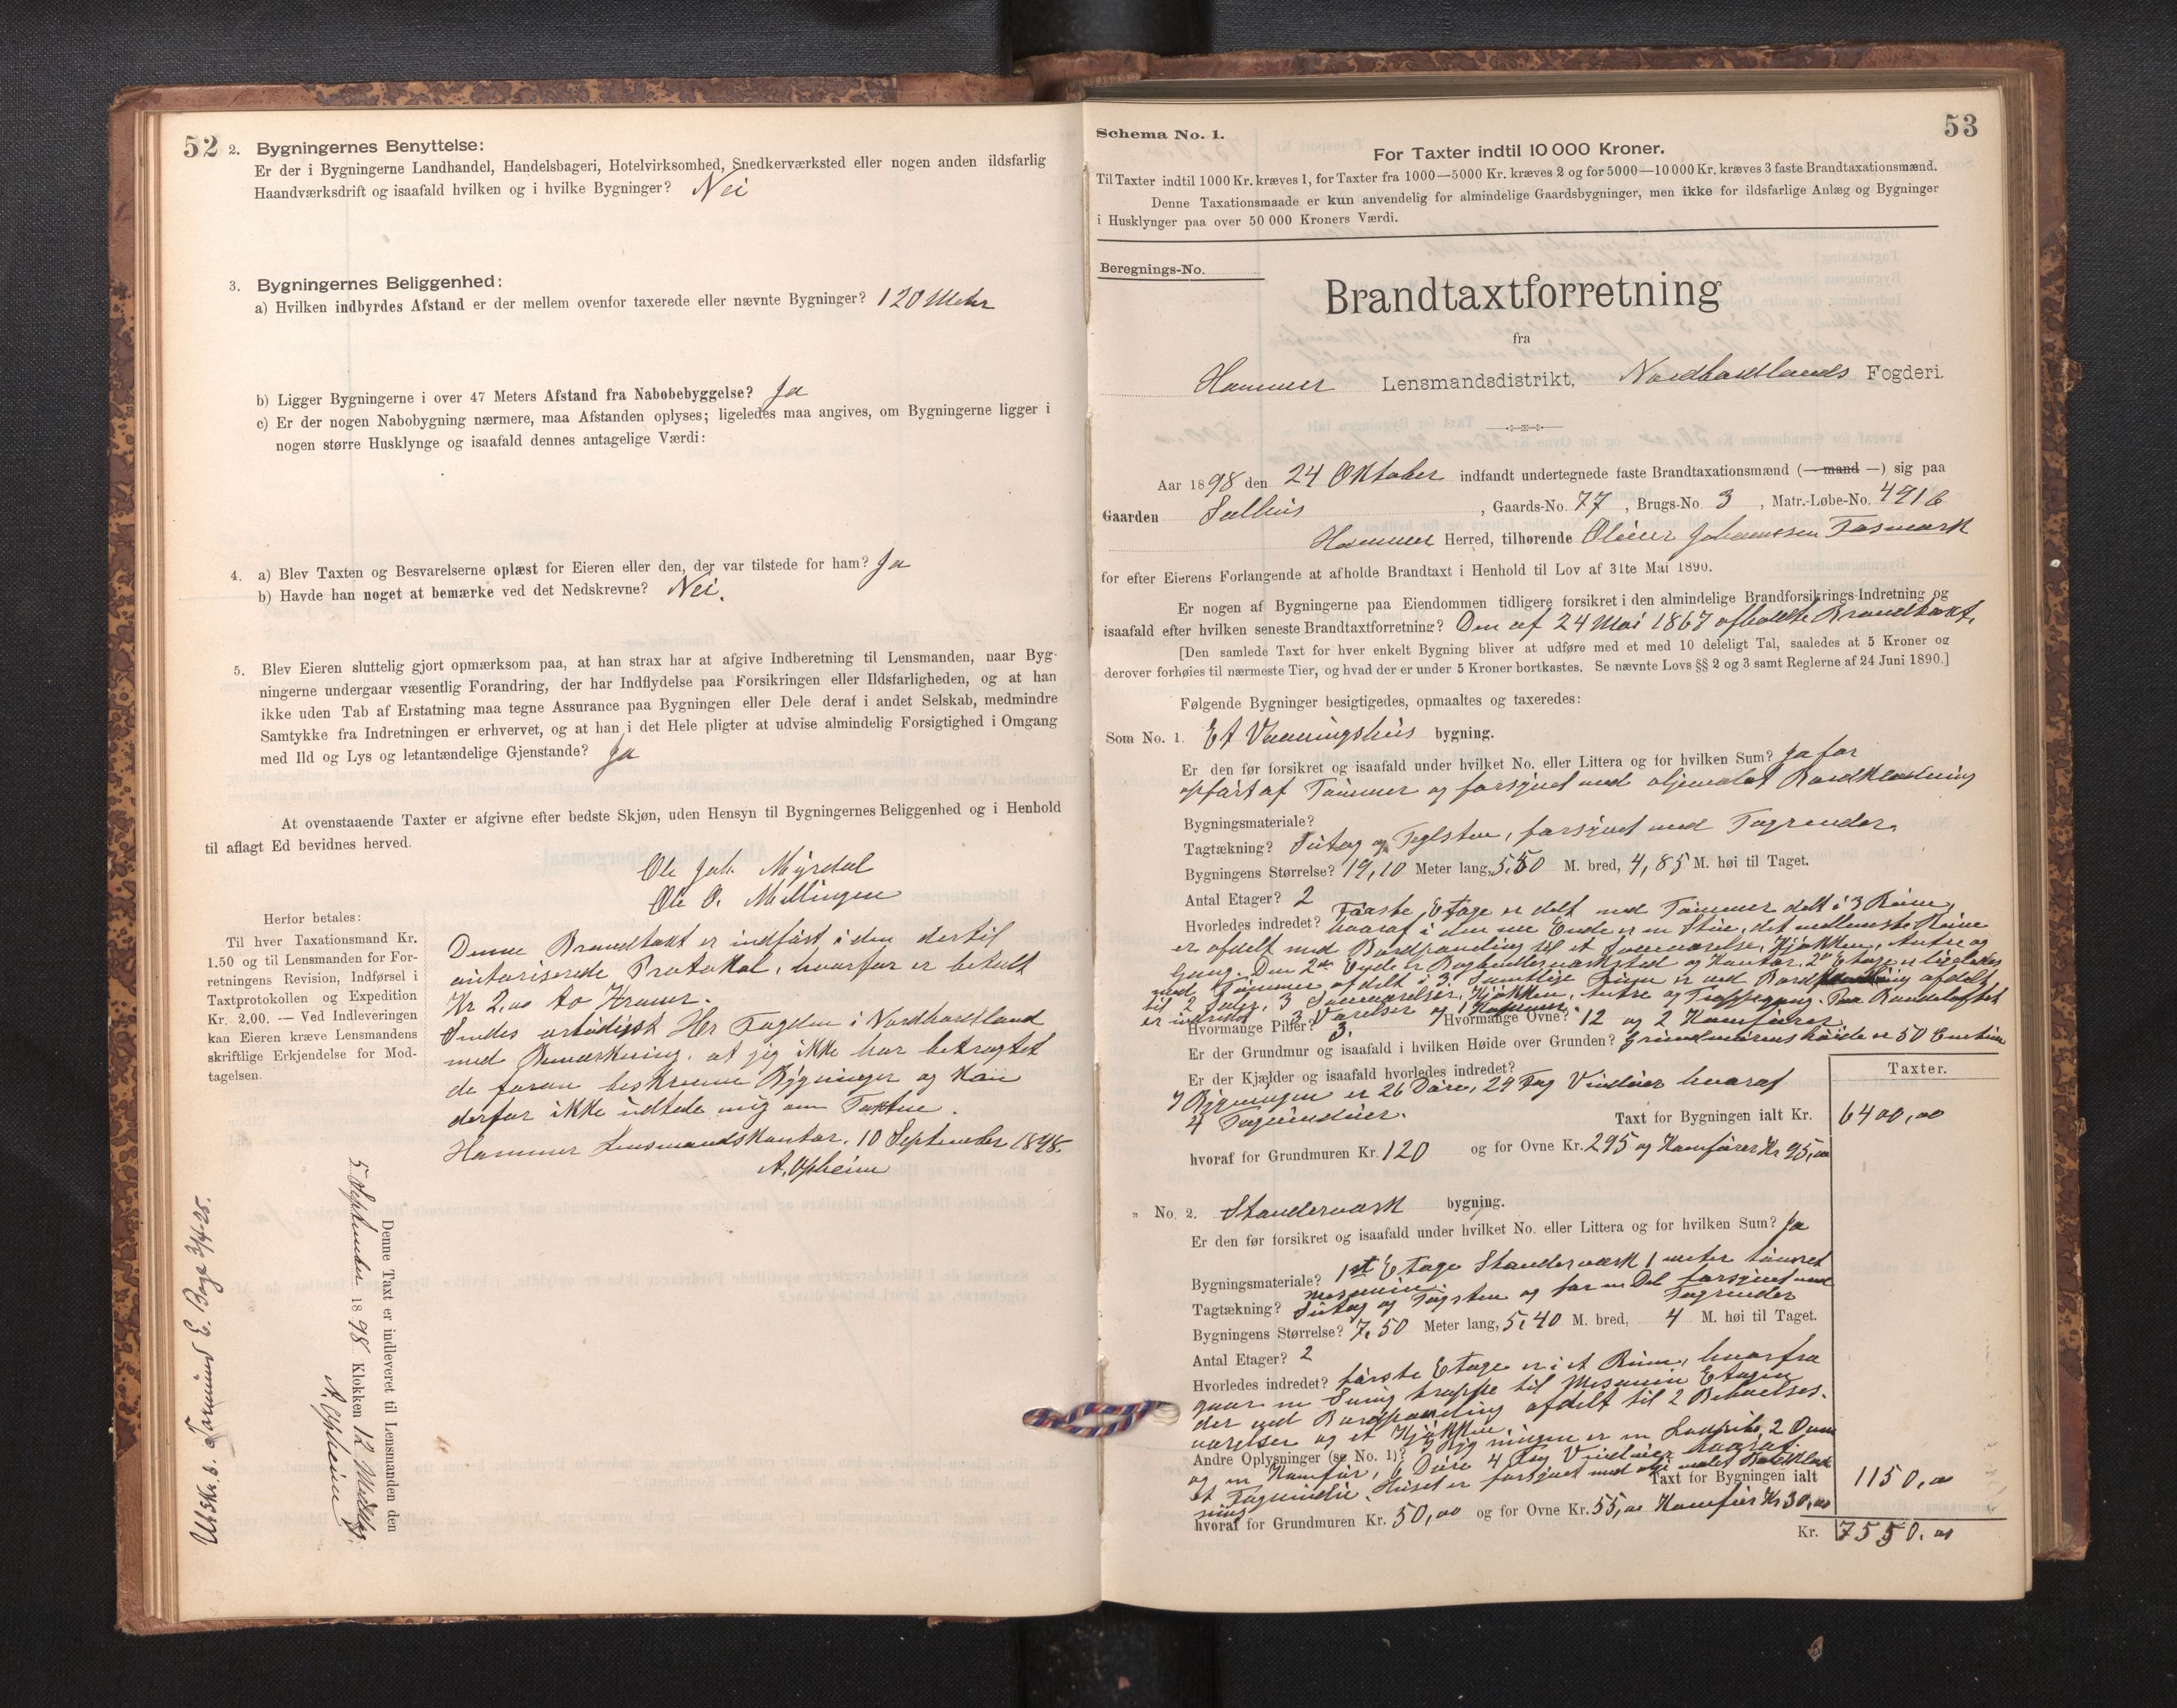 52
2. Bygningernes Benyttelse:
Er der i Bygningerne Landhandel, Handelsbageri, Hotelvirksomhed, Snedkerværksted eller nogen anden ildsfarlig
Haandværksdrift og isaafald hvilken og i hvilke Bygninger? Nei
3. Bygningernes Beliggenhed:
a) Hvilken indbyrdes Afstand er der mellem ovenfor taxerede eller nævnte Bygninger? 120 Meter
b) Ligger Bygningerne i over 47 Meters Afstand fra Nabobebyggelse? Ja
c) Er der nogen Nabobygning nærmere, maa Afstanden oplyses; ligeledes maa angives, om Bygningerne ligger i
nogen større Husklynge og isaafald dennes antagelige Værdi:
4. a) Blev Taxten og Besvarelserne oplæst for Eieren eller den, der var tilstede for ham? Ja
b) Havde han noget at bemærke ved det Nedskrevne? Nei.
5. Blev Eieren sluttelig gjort opmærksom paa, at han strax har at afgive Indberetning til Lensmanden, naar Byg-
ningerne undergaar væsentlig Forandring, der har Indflydelse paa Forsikringen eller Ildsfarligheden, og at han
ikke uden Tab af Erstatning maa tegne Assurance paa Bygningen eller Dele deraf i andet Selskab, medmindre
Samtykke fra Indretningen er erhvervet, og at han i det Hele pligter at udvise almindelig Forsigtighed i Omgang
med Ild og Lys og letantændelige Gjenstande? Ja
At ovenstaaende Taxter er afgivne efter bedste Skjøn, uden Hensyn til Bygningernes Beliggenhed og i Henhold
til aflagt Ed bevidnes herved.
Ole Joh. Myrdal
Ole O. Mellingen
Herfor betales:
Til hver Taxationsmand Kr.
1.50 og til Lensmanden for For-
retningens Revision, Indførsel i
Taxtprotokollen og Expedition
Kr. 2.00. — Ved Indleveringen
kan Eieren kræve Lensmandens
skriftlige Erkjendelse for Mod-
tagelsen.
Denne Brandtaxt er indført i den dertil
autoriserede Protokol, hvorfor er betalt
Kr 2,00 to Kroner.
Sendes ærbødigst Hr Fogden i Nordhordland
med Bemærkning, at jeg ikke har betragtet
de foran beskrevne Bygninger og kan
derfor ikke udtale mig om Taxten.
Hammer Lensmandskontor, 10 September 1898.
A. Opheim
Denne Taxt er indleveret til Lensmanden den
5 September 1898 Klokken 12 Middag.
A. Opheim
Utskr. d. E. Bøge 3/4 25.
53
Schema No. 1.
For Taxter indtil 10 000 Kroner.
Til Taxter indtil 1000 Kr. kræves 1, for Taxter fra 1000—5000 Kr. kræves 2 og for 5000—10 000 Kr. kræves 3 faste Brandtaxationsmænd.
Denne Taxationsmaade er kun anvendelig for almindelige Gaardsbygninger, men ikke for ildsfarlige Anlæg og Bygninger
i Husklynger paa over 50 000 Kroners Værdi.
Beregnings-No.
Brandtaxtforretning
fra
Hammer Lensmandsdistrikt, Nordhordlands Fogderi.
Aar 1898 den 24 Oktober indfandt undertegnede faste Brandtaxationsmænd (— mand —) sig paa
Gaarden Salhus, Gaards-No. 77, Brugs-No. 3, Matr.-Løbe-No. 491 b
Hammer Herred, tilhørende Oliver Johannesen Fosmark
for efter Eierens Forlangende at afholde Brandtaxt i Henhold til Lov af 31te Mai 1890.
Er nogen af Bygningerne paa Eiendommen tidligere forsikret i den almindelige Brandforsikrings-Indretning og
isaafald efter hvilken seneste Brandtaxtforretning? Den af 24 Mai 1867 afholdte Brandtaxt.
[Den samlede Taxt for hver enkelt Bygning bliver at udføre med et med 10 deleligt Tal, saaledes at 5 Kroner og
derover forhøies til nærmeste Tier, og hvad der er under 5 Kroner bortkastes. Se nævnte Lovs §§ 2 og 3 samt Reglerne af 24 Juni 1890.]
Følgende Bygninger besigtigedes, opmaaltes og taxeredes:
Som No. 1. Et Vaaningshus bygning.
Er den før forsikret og isaafald under hvilket No. eller Littera og for hvilken Sum? Ja for
opført af Tømmer og forsynet med oljemalet Bordklædning
Bygningsmateriale?
Tagtækning? Sutag og Teglsten, forsynet med Tagrender.
Bygningens Størrelse? 19,10 Meter lang, 5,50 M. bred, 4,85 M. høi til Taget.
Antal Etager? 2
Hvorledes indredet? Første Etage er delt med Tømmer delt i 3 Rum,
hvoraf i den ene Ende er en Stue, det mellemste Rum
er afdelt med Bordpanding til et Soveværelse, Kjøkken, Entre og
Gang. Den 2den Ende er Bogbinderværksted og Kontor. 2den Etage er ligeledes
med Tømmer afdelt i 3. Samtlige Rum er med Bordpanding afdelt
til 2 Saler, 3 Soveværelser, Kjøkken, Entre og Trappegang. Paa Rundeloftet
er indredet 3 Værelser og 1 Kammer.
Hvormange Piber? 3. Hvormange Ovne? 12 og 2 Komfurer
Er der Grundmur og isaafald i hvilken Høide over Grunden? Grundmurens høide er 50 Centim
Er der Kjælder og isaafald hvorledes indredet?
I Bygningen er 26 Døre, 29 Fag Vinduer hvoraf
4 Tagvinduer.
Taxter.
Taxt for Bygningen ialt Kr. 6400,00
hvoraf for Grundmuren Kr. 120 og for Ovne Kr. 295 og Komfurer Kr 95,00
„ No. 2. Standerværk bygning.
Er den før forsikret og isaafald under hvilket No. eller Littera og for hvilken Sum? Ja
Bygningsmateriale? 1st Etage Standerværk 1 meter tømret
Mesanin.
Tagtækning? Sutag og Tagsten og for en Del forsynet med
Tagrender
Bygningens Størrelse? 7,50 Meter lang, 5,40 M. bred, 4 M. høi til Taget.
Antal Etager? 2
Hvorledes indredet? Første Etage er i et Rum, hvorfra
gaar en Sving trappe til Mesanin Etagen
der ved Bordpanding afdelt til 2 Beboelses-
værelser og et Kjøkken.
Andre Oplysninger (se No. 1)? I Bygningen er en 2 Ovne
og en Komfur, 6 Døre 4 Fag Vinduer hvoraf
et Tagvindu. Huset er forsynet med olje malet Bordklæd
ning
Taxt for Bygningen ialt 1150,00
hvoraf for Grundmuren Kr. 50,00 og for Ovne Kr. 55,00 Komfur Kr 30,00
Kr. 7550,00